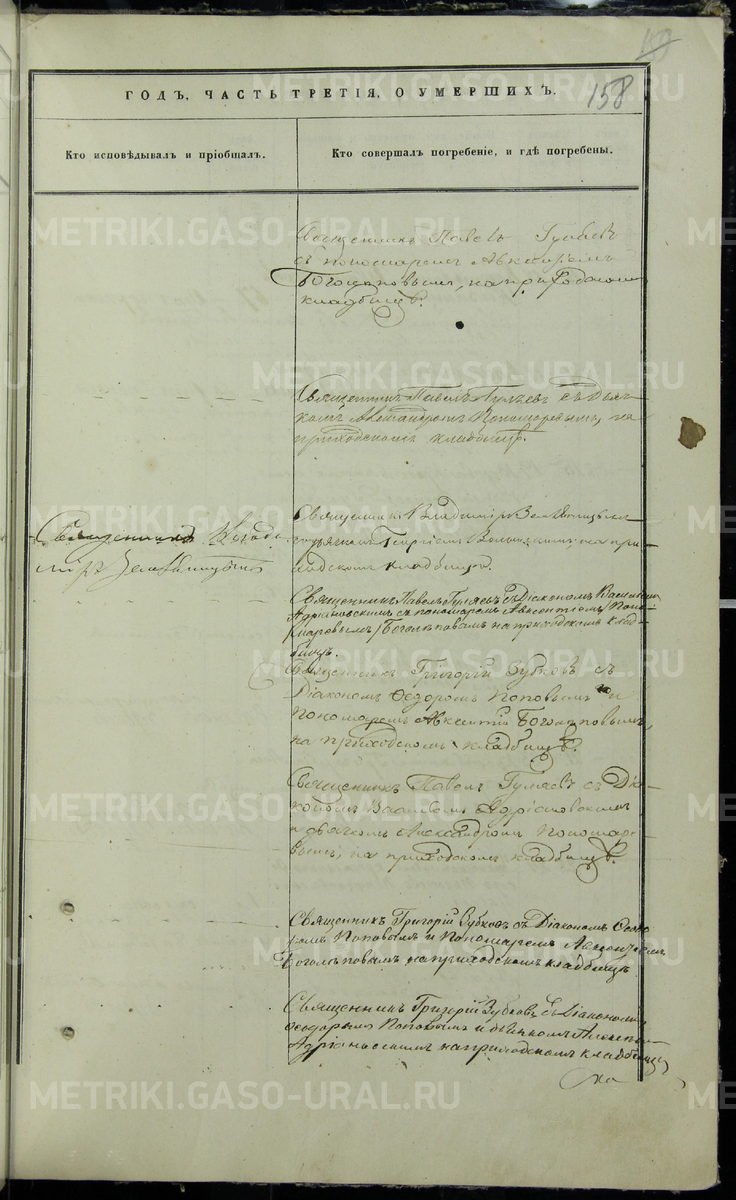 49
158
ГОДЪ, ЧАСТЬ ТРЕТІЯ, О УМЕРШИХЪ.
Кто исповѣдывалъ и пріобщалъ.
Кто совершалъ погребеніе, и гдѣ погребены.
Священникъ Павелъ
съ пономаремъ Авксентіемъ
Боголѣповымъ, на приходскомъ
кладбищѣ.
Священникъ Павелъ Гуляевъ съ Дья-
комъ Александромъ Пономаревымъ, на
приходскомъ кладбищѣ.
Священникъ Влади-
міръ Земляницынъ
Священникъ Владиміръ Земляницынъ
Георгіемъ на при-
ходскомъ кладбищѣ.
Священникъ Павелъ Гуляевъ съ Діакономъ Василіемъ
Адріановскимъ съ пономаремъ Авксентіемъ /Поно-
маревымъ/ Боголѣповымъ на приходскомъ клад-
бищѣ.
Священникъ Григорій Зубковъ съ
Діакономъ Ѳедоромъ Поповымъ и
Пономаремъ Авксентій Боголѣповымъ,
на приходскомъ кладбищѣ.
Священникъ Павелъ Гуляевъ съ Діа-
кономъ Василіемъ Адріановскимъ
и дьячкомъ Александромъ Понома-
ревымъ, на приходскомъ кладбищѣ.
Священникъ Григорій Зубковъ съ Діакономъ Ѳедо-
ромъ Поповымъ и Пономаремъ Авксентіемъ
Боголѣповымъ на приходскомъ кладбищѣ
Священникъ Григорій Зубковъ съ Діакономъ
Ѳеодоромъ Поповымъ и дьячкомъ
Адріановскимъ на приходскомъ кладбищѣ
METRIKI.GASO-URAL.RU